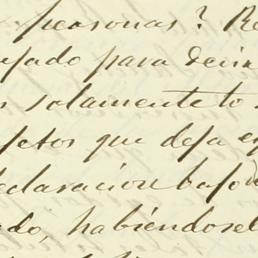 personas? Re
usado para decir
s solamente to
fetos que deja es
declaracion bajo
do, habiéndosel